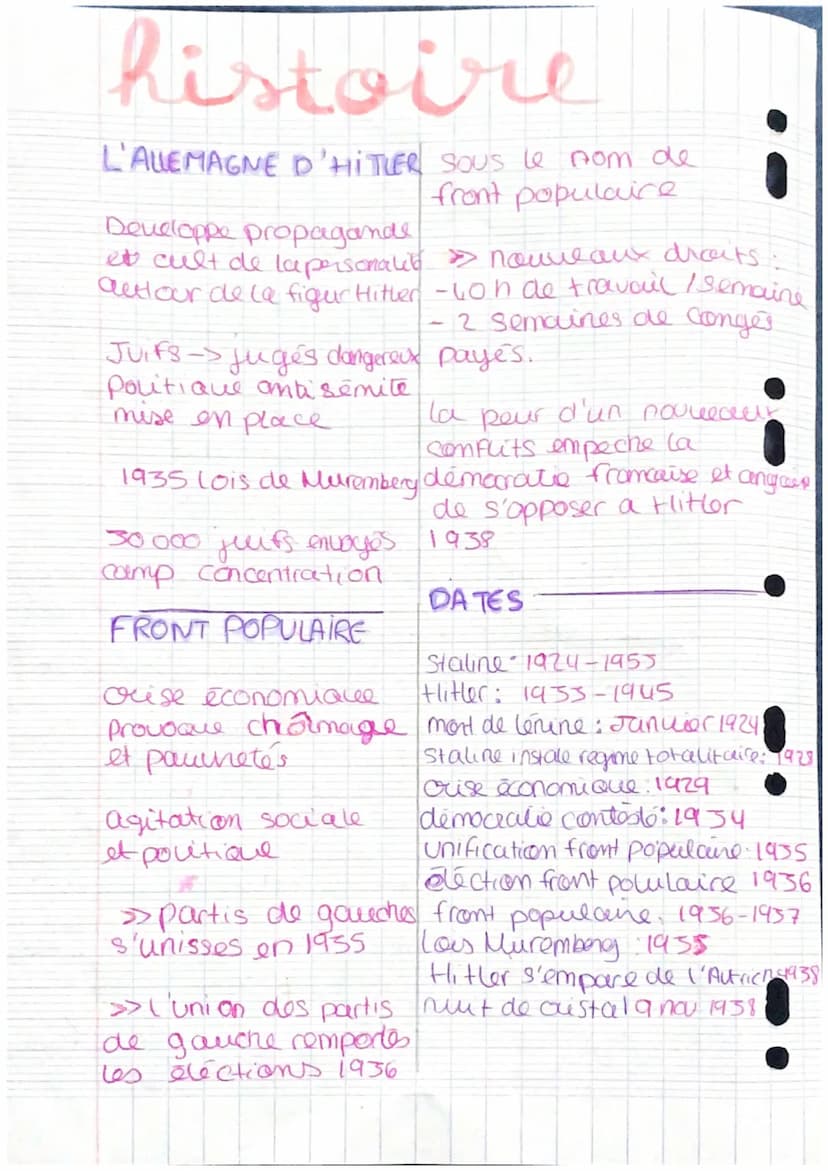 histoire
L'ALLEMAGNE D'HITLER
Developpe propagande
et cult de la personalité
autour de la figur Hitler
Juifs -> jugés dangereux
politique antisémite
mise en place
1935 lois de Nuremberg
30 000 juifs envoyés
camp concentration
FRONT POPULAIRE
crise économique
provoque chômage
et pauvretés
agitation sociale
et politique
>> partis de gauches
s'unisses en 1935
>> l'union des partis
de gauche remportes
les éléctions 1936
sous le nom de
front populaire
>> nouveaux droits :
- 40 h de travail / semaine
- 2 semaines de congés
payés.
la peur d'un nouveau
conflits empeche la
démocratie francaise et
de s'opposer a Hitler
1938
DATES
Staline : 1924-1953
Hitler : 1933-1945
mort de lénine : Janvier 1924
Staline instale regime totalitaire : 1928
crise économique : 1929
démocratie contésté : 1934
unification front populaire : 1935
éléction front polulaire 1936
front populaire : 1936-1937
Lois Nuremberg : 1935
Hitler s'empare de l'Autriche 1938
nuit de cristal 9 nov 1938